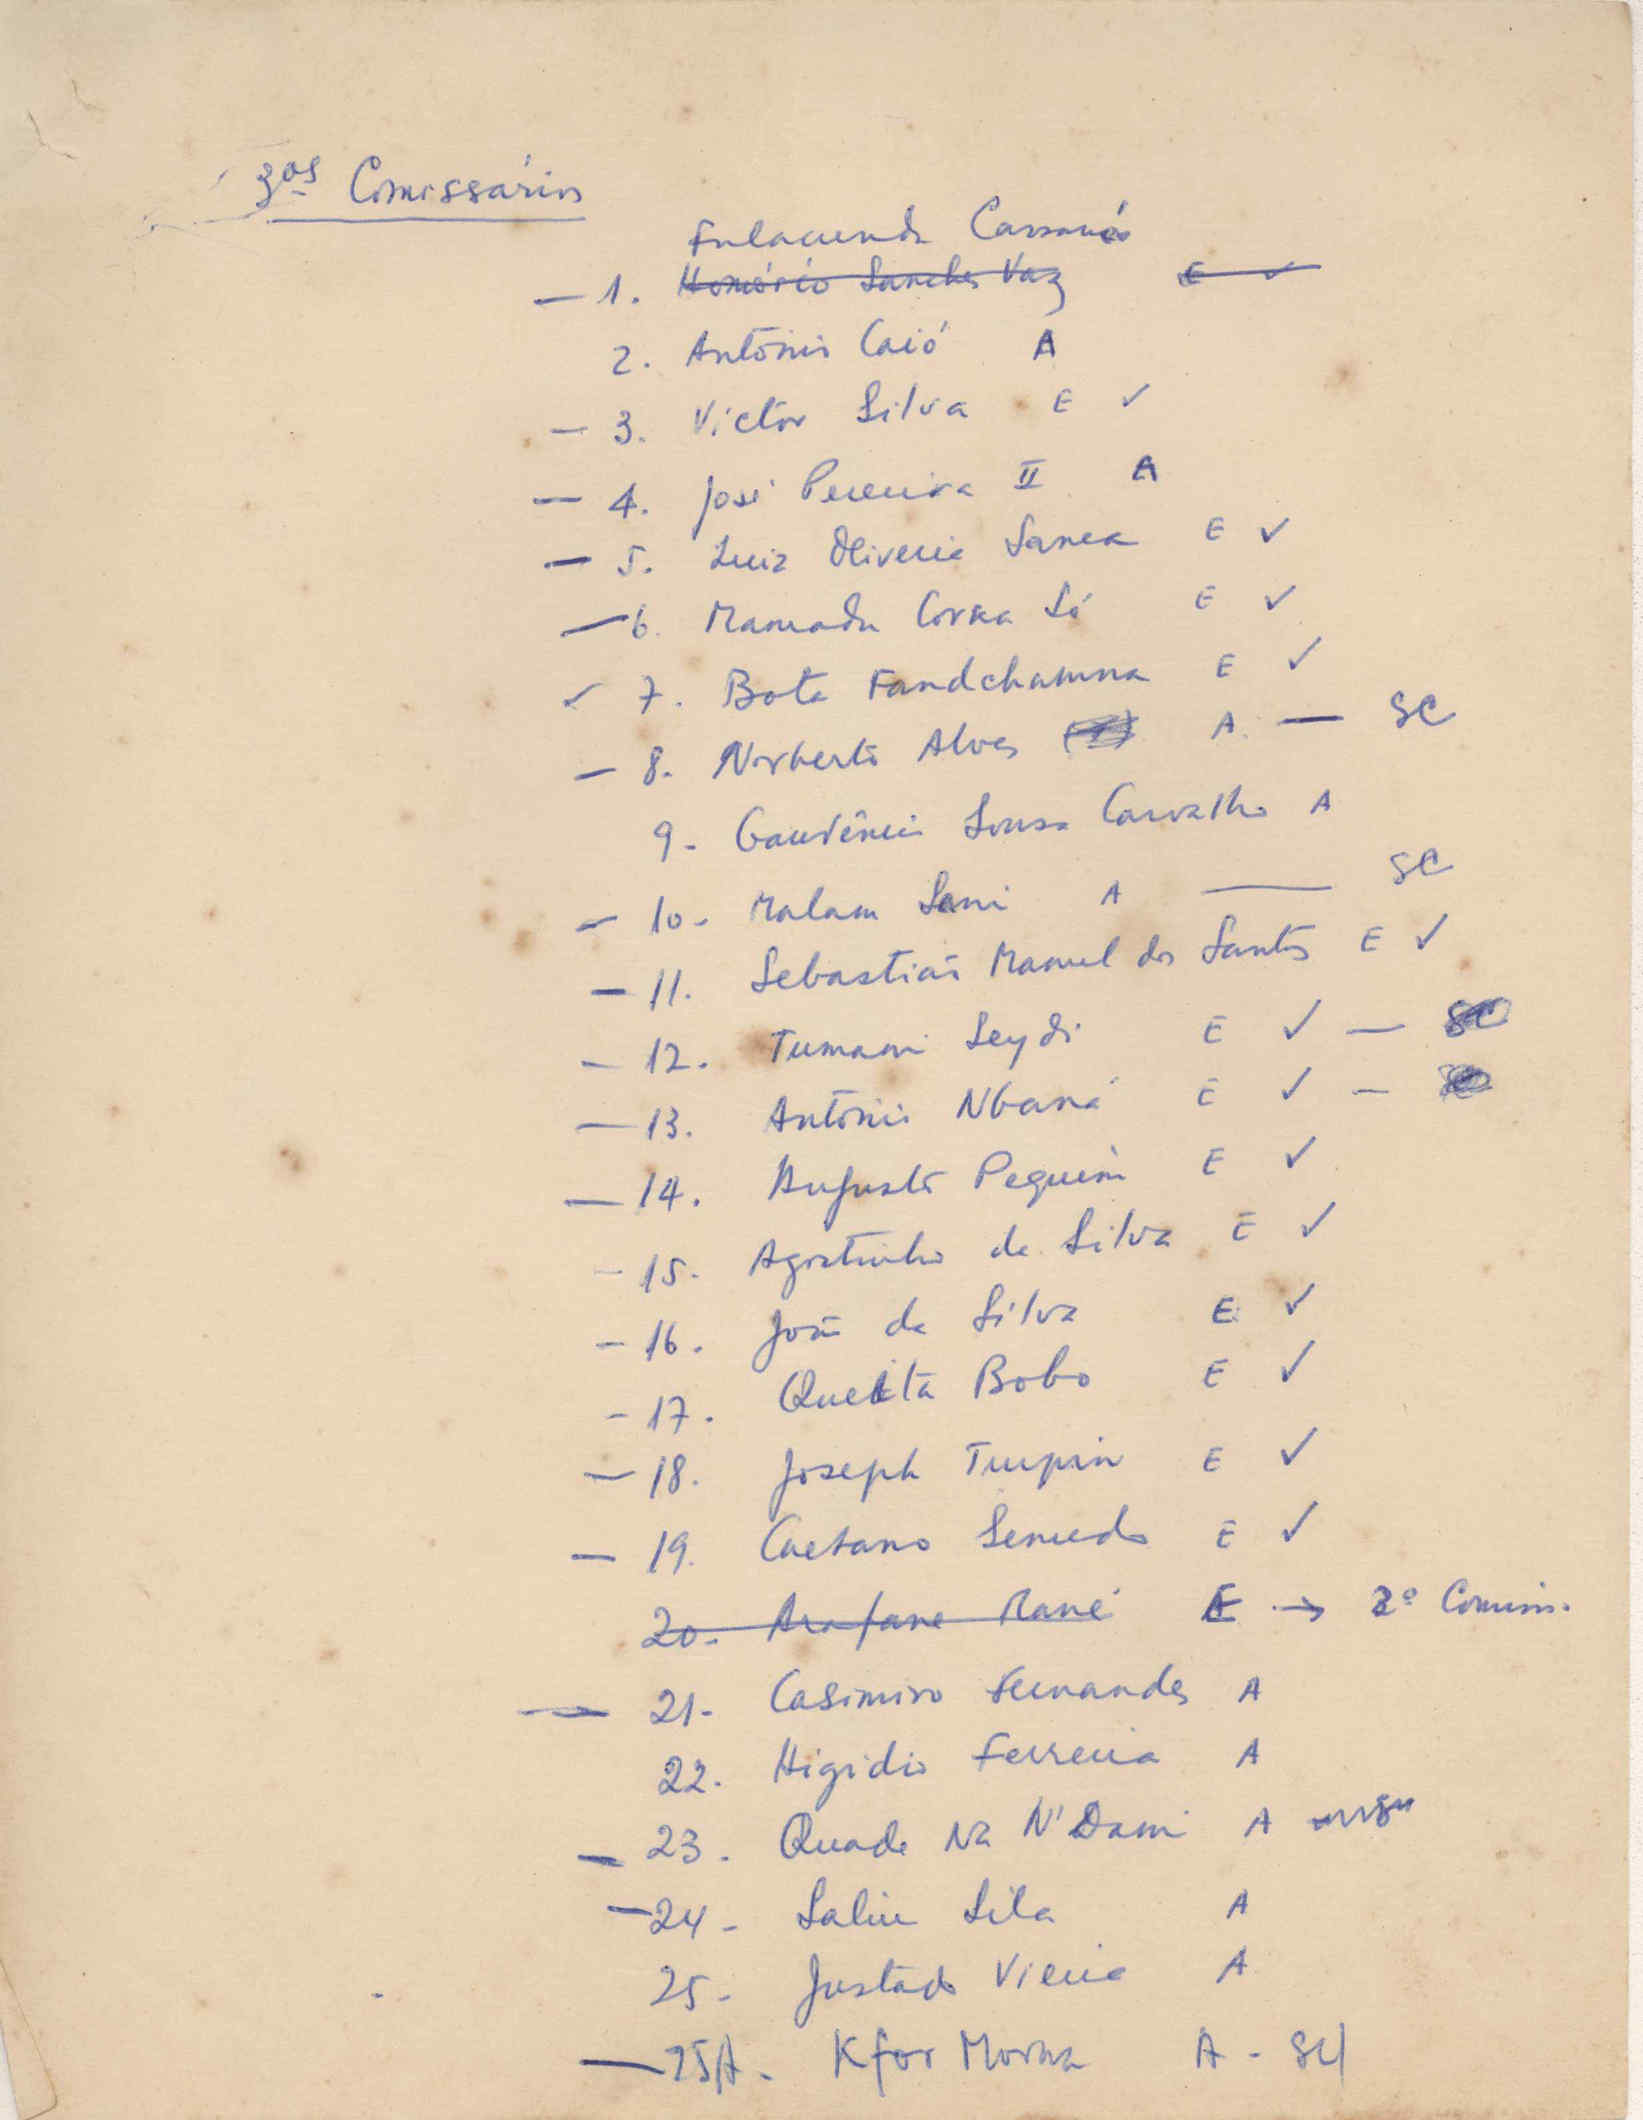 3os Comissários
Fulacunda Cassamá
— 1. Honório Sanches Vaz E ✓
2. António Caió A
— 3. Victor Silva E ✓
— 4. José Pereira II A
— 5. Luiz Oliveira Sanca E ✓
— 6. Mamadu Corka Só E ✓
✓ 7. Bota Fandchamna E ✓
— 8. Norberto Alves A — SC
9- Gaudêncio Sousa Carvalho A
— 10- Malam Sani A — SC
— 11. Sebastião Manuel dos Santos E ✓
— 12. Tumani Seydi E ✓ — SC
— 13. António Nbaná E ✓ —
— 14. Augusto Pequim E ✓
— 15- Agostinho da Silva E ✓
— 16. João da Silva E ✓
— 17. Queita Bobo E ✓
— 18. Joseph Turpin E ✓
— 19. Caetano Semedo E ✓
20. Arafane Mané E → 2º Comiss.
— 21- Casimiro Fernandes A
22. Higidio Ferreira A
— 23. Quade Na N'Dami A
— 24- Saliu Sila A
25- Justado Vieira A
— 25A. Kfor Morna A - SC